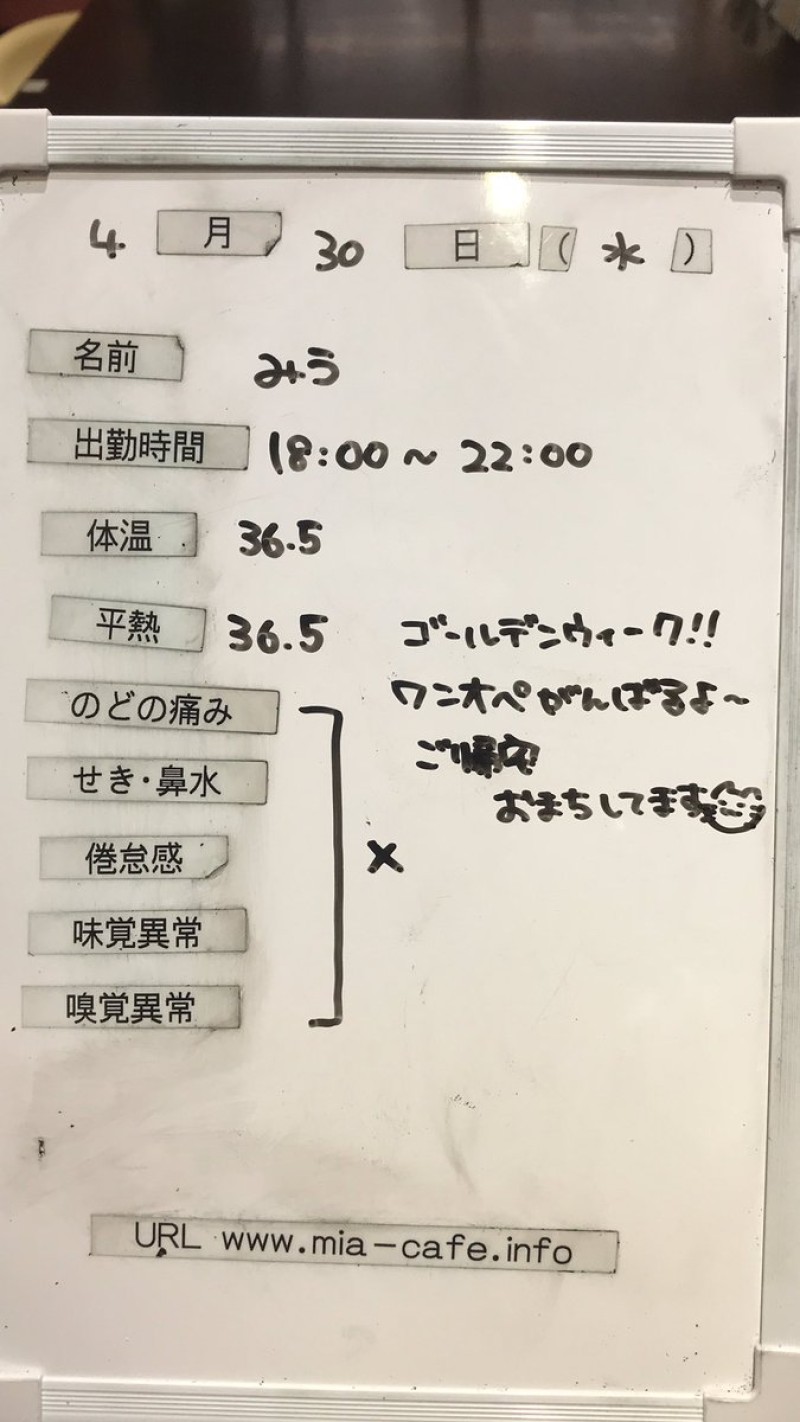 4月30日(水)
名前 みう
出勤時間 18:00~22:00
体温 36.5
平熱 36.5
のどの痛み
せき・鼻水
倦怠感
味覚異常
嗅覚異常
×
ゴールデンウィーク!!
ワンオペがんばるよ~
ご帰宅
おまちしてます
URL www.mia-cafe.info